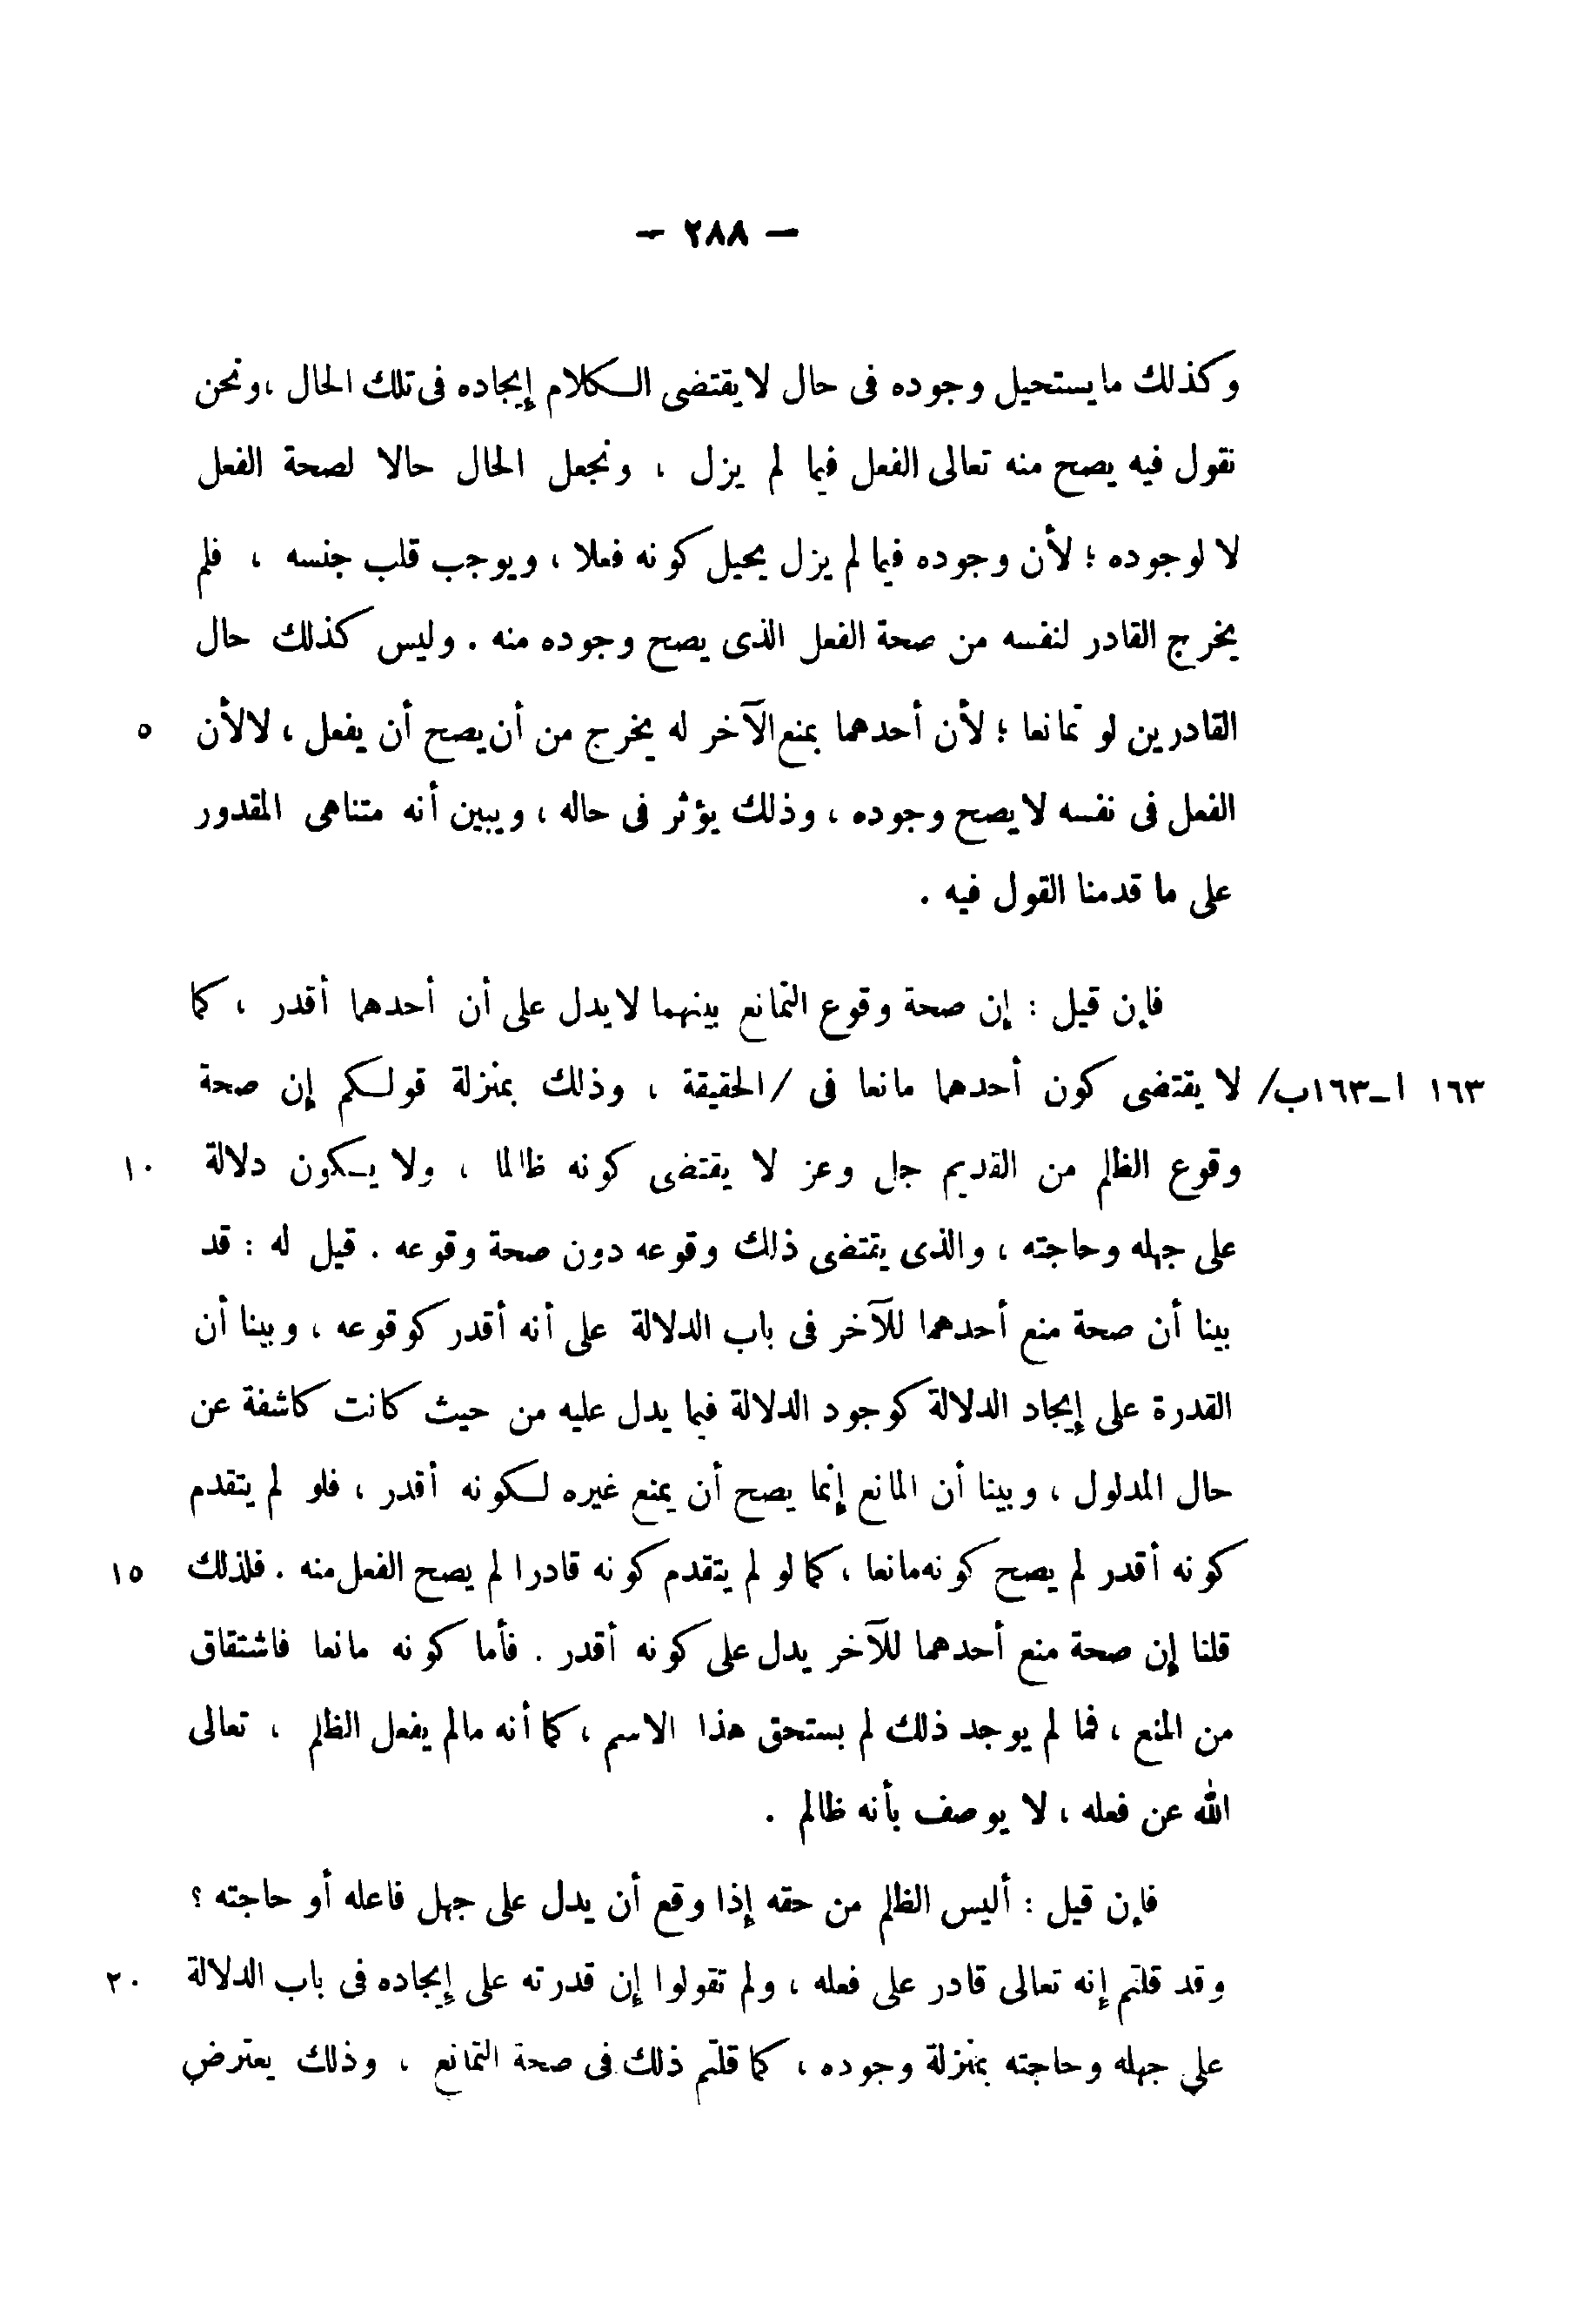 — ٢٨٨ —
وكذلك ما يستحيل وجوده فى حال لا يقتضى الكلام إيجاده فى تلك الحال ، ونحن
نقول فيه يصح منه تعالى الفعل فيما لم يزل ، ونجعل الحال حالا لصحة الفعل
لا لوجوده ؛ لأن وجوده فيما لم يزل يحيل كونه فعلا ، ويوجب قلب جنسه ، فلم
يخرج القادر لنفسه من صحة الفعل الذى يصح وجوده منه . وليس كذلك حال
القادرين لو تمانعا ؛ لأن أحدهما بمنع الآخر له يخرج من أن يصح أن يفعل ، لا لأن ٥
الفعل فى نفسه لا يصح وجوده ، وذلك يؤثر فى حاله ، ويبين أنه متناهى المقدور
على ما قدمنا القول فيه .
فإن قيل : إن صحة وقوع التمانع بينهما لا يدل على أن أحدهما أقدر ، كما
١٦٣ ا ــ ١٦٣ب/ لا يقتضى كون أحدهما مانعا فى /الحقيقة ، وذلك بمنزلة قولكم إن صحة
وقوع الظلم من القديم جل وعز لا يقتضى كونه ظالما ، ولا يكون دلالة ١٠
على جهله وحاجته ، والذى يقتضى ذلك وقوعه دون صحة وقوعه . قيل له : قد
بينا أن صحة منع أحدهما للآخر فى باب الدلالة على أنه أقدر كوقوعه ، وبينا أن
القدرة على إيجاد الدلالة كوجود الدلالة فيما يدل عليه من حيث كانت كاشفة عن
حال المدلول ، وبينا أن المانع إنما يصح أن يمنع غيره لكونه أقدر ، فلو لم يتقدم
كونه أقدر لم يصح كونه مانعا ، كما لو لم يتقدم كونه قادرا لم يصح الفعل منه . فلذلك ١٥
قلنا إن صحة منع أحدهما للآخر يدل على كونه أقدر . فأما كونه مانعا فاشتقاق
من المنع ، فما لم يوجد ذلك لم يستحق هذا الاسم ، كما أنه مالم يفعل الظلم ، تعالى
الله عن فعله ، لا يوصف بأنه ظالم .
فإن قيل : أليس الظلم من حقه إذا وقع أن يدل على جهل فاعله أو حاجته ؟
وقد قلتم إنه تعالى قادر على فعله ، ولم تقولوا إن قدرته على إيجاده فى باب الدلالة ٢٠
على جهله وحاجته بمنزلة وجوده ، كما قلتم ذلك فى صحة التمانع ، وذلك يعترض